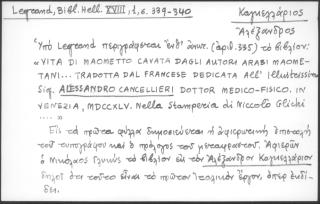 Legrand, Bibl. Hell. XVIII, 1, σ. 339-340
Καγκελλάριος
Ἀλέξανδρος
Ὑπὸ Legrand περιγράφεται ἐνθ' ἀνωτ. (ἀριθ. 335) τὸ βιβλίον:
«VITA DI MAOMETTO CAVATA DAGLI AUTORI ARABI MAOME-
TANI... TRADOTTA DAL FRANCESE DEDICATA All' Illustrissimo
Sig. ALESSANDRO CANCELLIERI DOTTOR MEDICO-FISICO. IN
VENEZIA, MDCCXLV. Nella Stamperia di Niccolo Glichi
.... »
Εἰς τὰ πρῶτα φύλλα δημοσιεύεται ἡ ἀφιερωτικὴ ἐπιστολὴ
τοῦ τυπογράφου καὶ ὁ πρόλογος τοῦ μεταφραστοῦ. Ἀφιερῶν
ὁ Νικόλαος Γλυκὺς τὸ βιβλίον εἰς τὸν Ἀλέξανδρον Καγκελλάριον
δηλοῖ ὅτι τοῦτο εἶναι τὸ πρῶτον Ἰταλικὸν ἔργον, ὅπερ ἐκδί-
δει.